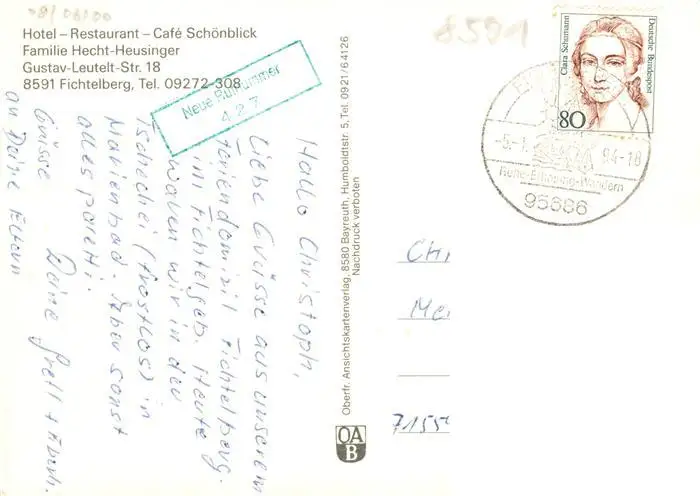 08/06/00
8591
Hotel – Restaurant – Café Schönblick
Familie Hecht-Heusinger
Gustav-Leutelt-Str. 18
8591 Fichtelberg, Tel. 09272-308
Neue Rufnummer
427
Hallo Christoph,
Liebe Grüsse aus unserem
Feriendomizil Fichtelberg
im Fichtelgeb. Heute
waren wir in der
Tschechei (trostlos) in
Marienbad. Aber sonst
alles paletti.
Grüsse
an Deine Eltern
Deine
Oberfr. Ansichtskartenverlag, 8580 Bayreuth, Humboldtstr. 5, Tel. 0921/64126
Nachdruck verboten
OA
B
Clara Schumann
Deutsche Bundespost
80
-5.-1. 94-18
Ruhe-Erholung-Wandern
95686
CH
Me
7155